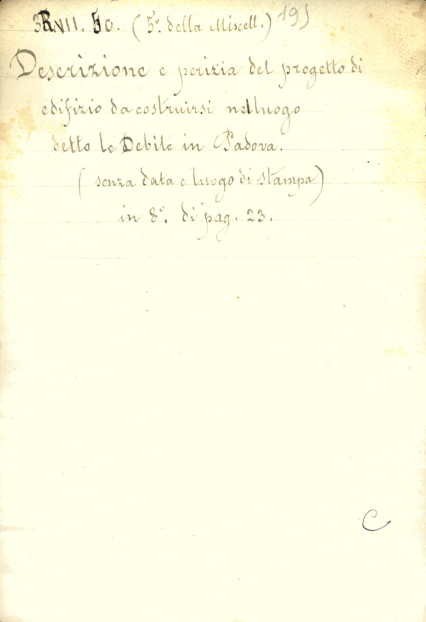 3RVII. 50. (5º. della Miscell.) 195
Descrizione e perizia del progetto di
edifizio da costruirsi nel luogo
detto le Debite in Padova.
(senza data e luogo di stampa)
in 8º. di pag. 23.
C